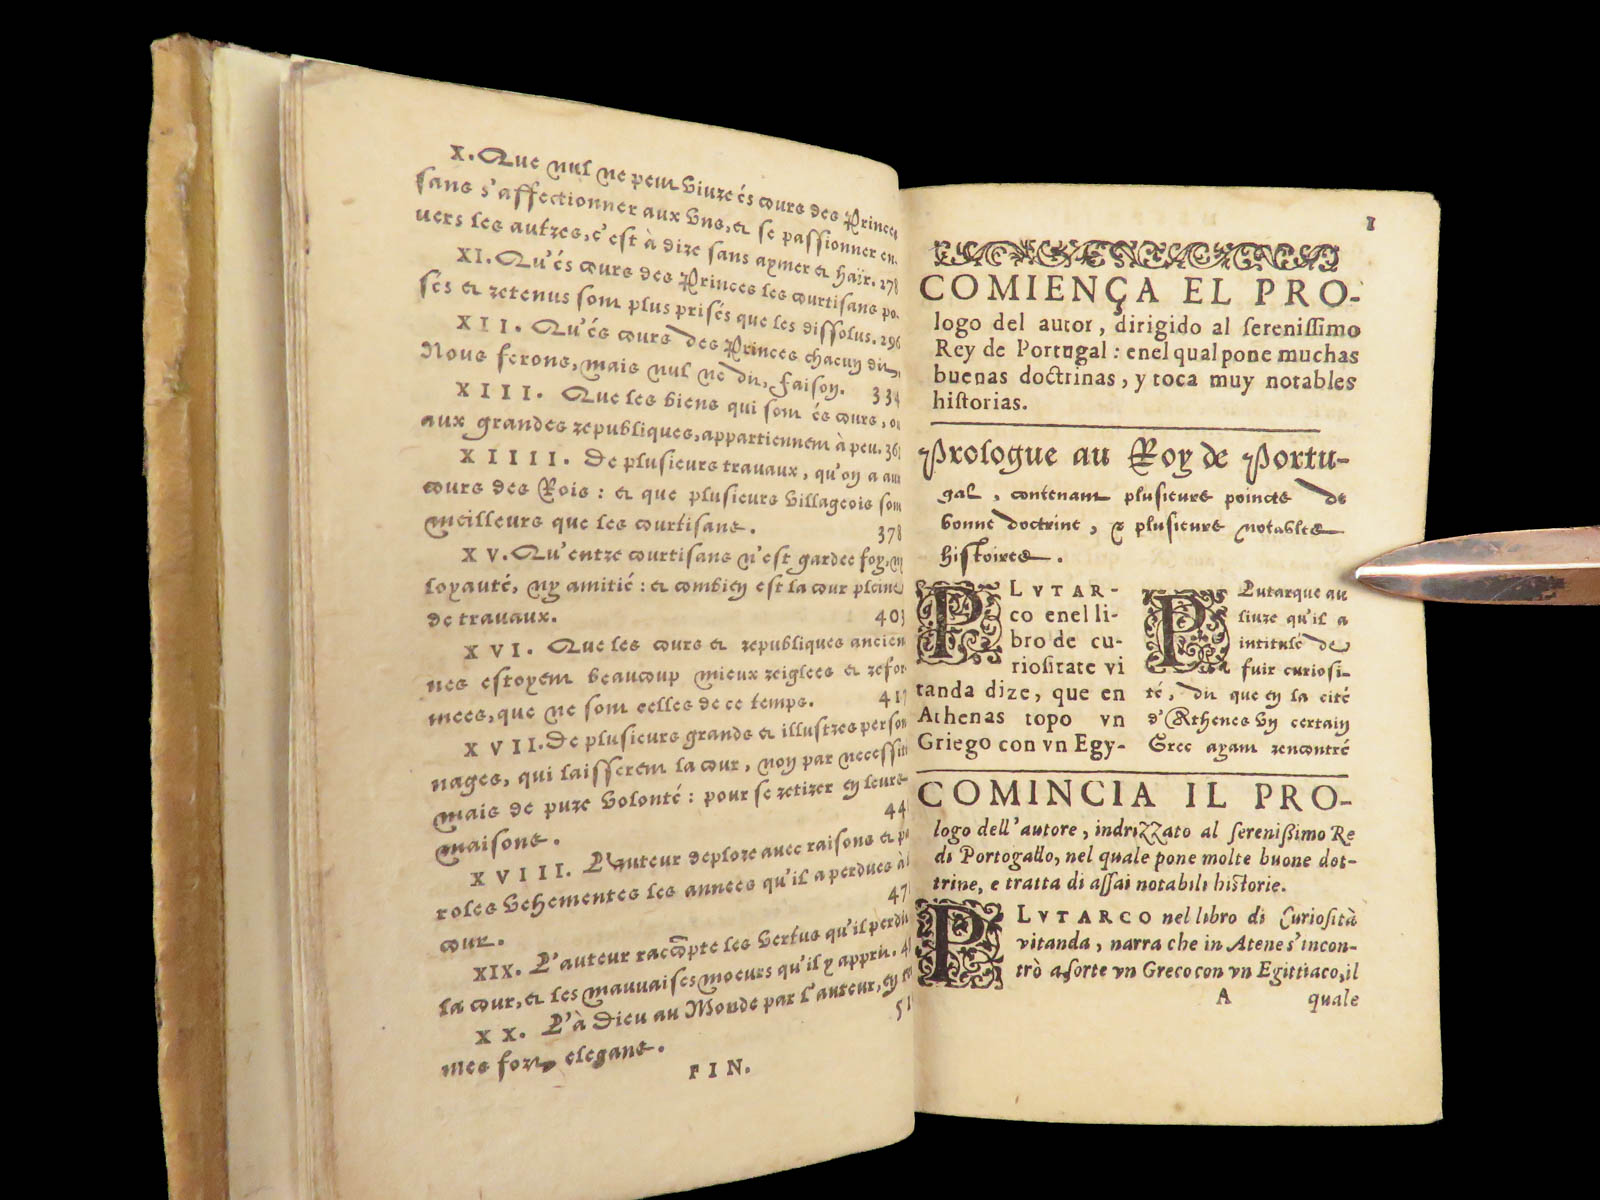 X. Que nul ne peut viure és cours des Princes
sans s'affectionner aux vns, & se passionner en-
uers les autres, c'est à dire sans aymer & haïr. 278
XI. Qu'és cours des Princes les courtisans po-
sés & retenus sont plus prisés que les dissolus. 296
XII. Qu'és cours des Princes chacun dit,
Nous ferons, mais nul ne dit, faison. 334
XIII. Que les biens qui sont és cours, ou
aux grandes republiques, appartiennent à peu. 361
XIIII. De plusieurs travaux, qu'on a aux
cours des Rois: & que plusieurs villageois sont
meilleurs que les courtisans. 378
XV. Qu'entre courtisans n'est gardee foy, ny
loyauté, ny amitié: & combien est la cour pleine
de travaux. 403
XVI. Que les cours & republiques ancien
nes estoyent beaucoup mieux reiglees & refor
mees, que ne sont celles de ce temps. 417
XVII. De plusieurs grands & illustres person
nages, qui laisserent la cour, non par necessité
mais de pure volonté: pour se retirer en leurs
maisons. 44
XVIII. L'auteur deplore avec raisons & pa
roles vehementes les annees qu'il a perdues à l
cour. 47
XIX. L'auteur racōpte les vertus qu'il perdit
la cour, & les mauvaises moeurs qu'il y apprit. 4
XX. L'à Dieu au Monde par l'auteur, en
mes fort elegans. 51
FIN.
1
COMIENÇA EL PRO-
logo del autor, dirigido al serenissimo
Rey de Portugal: enel qual pone muchas
buenas doctrinas, y toca muy notables
historias.
Prologue au Roy de Portu-
gal, contenant plusieurs poincts de
bonne doctrine, & plusieurs notables
histoires.
PLVTAR-
co enel li-
bro de cu-
riositate vi
tanda dize, que en
Athenas topo vn
Griego con vn Egy-
Plutarque au
liure qu'il a
intitulé de
fuir curiosi-
té, dit que en la cité
d'Athenes vn certain
Grec ayant rencontré
COMINCIA IL PRO-
logo dell'autore, indrizzato al serenißimo Re
di Portogallo, nel quale pone molte buone dot-
trine, e tratta di assai notabili historie.
PLVTARCO nel libro di Curiosità
vitanda, narra che in Atene s'incon-
trò a sorte vn Greco con vn Egittiaco, il
A quale